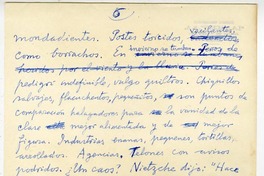 5
mondadientes. Postes torcidos, vacilantes,
como borrachos. En invierno se tumban. Perros de
pedigri indefinible, valgo quiltros. Chiquillos
salvajes, flacuchentos, pequeñitos, son puntos de
comparación halagadores para la vanidad de la
clase mejor alimentada y de mejor
figura. Industrias enanas, pequeñas, tortillas,
arrollados. Agencias. Telones con avisos
podridos. ¿Un caos? Nietzche dijo: "Hace